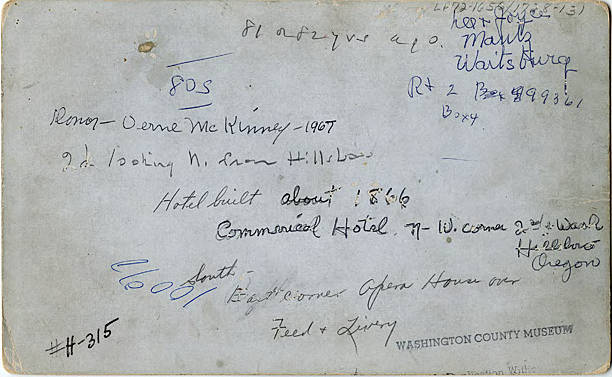 81 or 82 yrs ago.
Lee & Joyce
Mantz
Waitsburg
Rt 2 Box 99361
Box 4
80s
Donor - Verne McKinney - 1967
2d. looking N. from Hillsboro
Hotel built about 1866
Commercial Hotel, N-W. corner 2nd & Wash
Hillsboro
Oregon
South-
East corner Opera House over
Feed & Livery
#H-315
WASHINGTON COUNTY MUSEUM